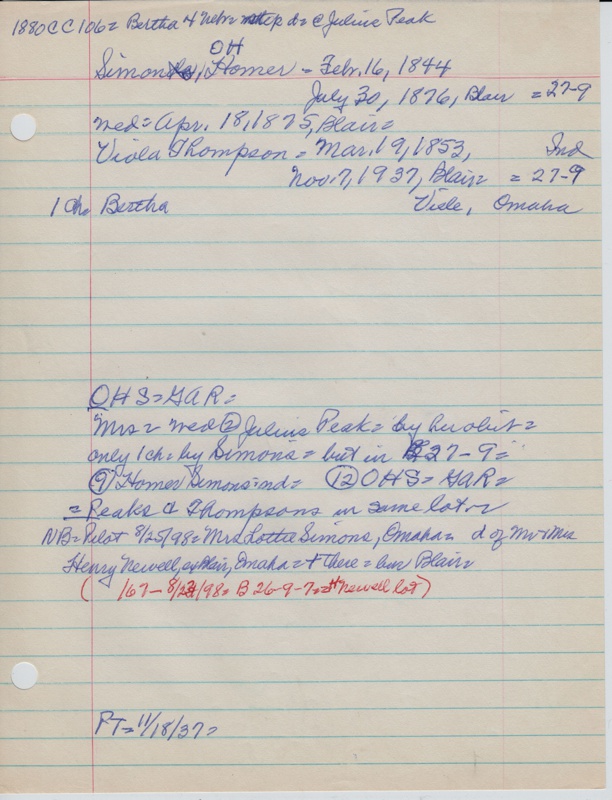 1880 CC 106 = Bertha 4 Nebr step d = @ Julius Peak
OH
Simons, Homer = Febr. 16, 1844
July 30, 1876, Blair = 27-9
med = Apr. 18, 1875, Blair =
Viola Thompson = Mar. 19, 1853, Ind
Nov. 7, 1937, Blair = 27-9
1 ch. Bertha Viele, Omaha
OHS = GAR =
Mrs = med ② Julius Peak = by her obit =
only 1 ch = by Simons = but in 27-9 =
⑨ Homer Simons = nd = ⑫ OHS = GAR =
= Peaks & Thompsons in same lot =
NB = Pilot 8/25/98 = Mrs Lottie Simons, Omaha = d of Mr & Mrs
Henry Newell, Blair, Omaha = + there = bur Blair =
( 167 - 8/23/98 = B 26-9-7 = Newell lot )
PT = 11/18/37 =